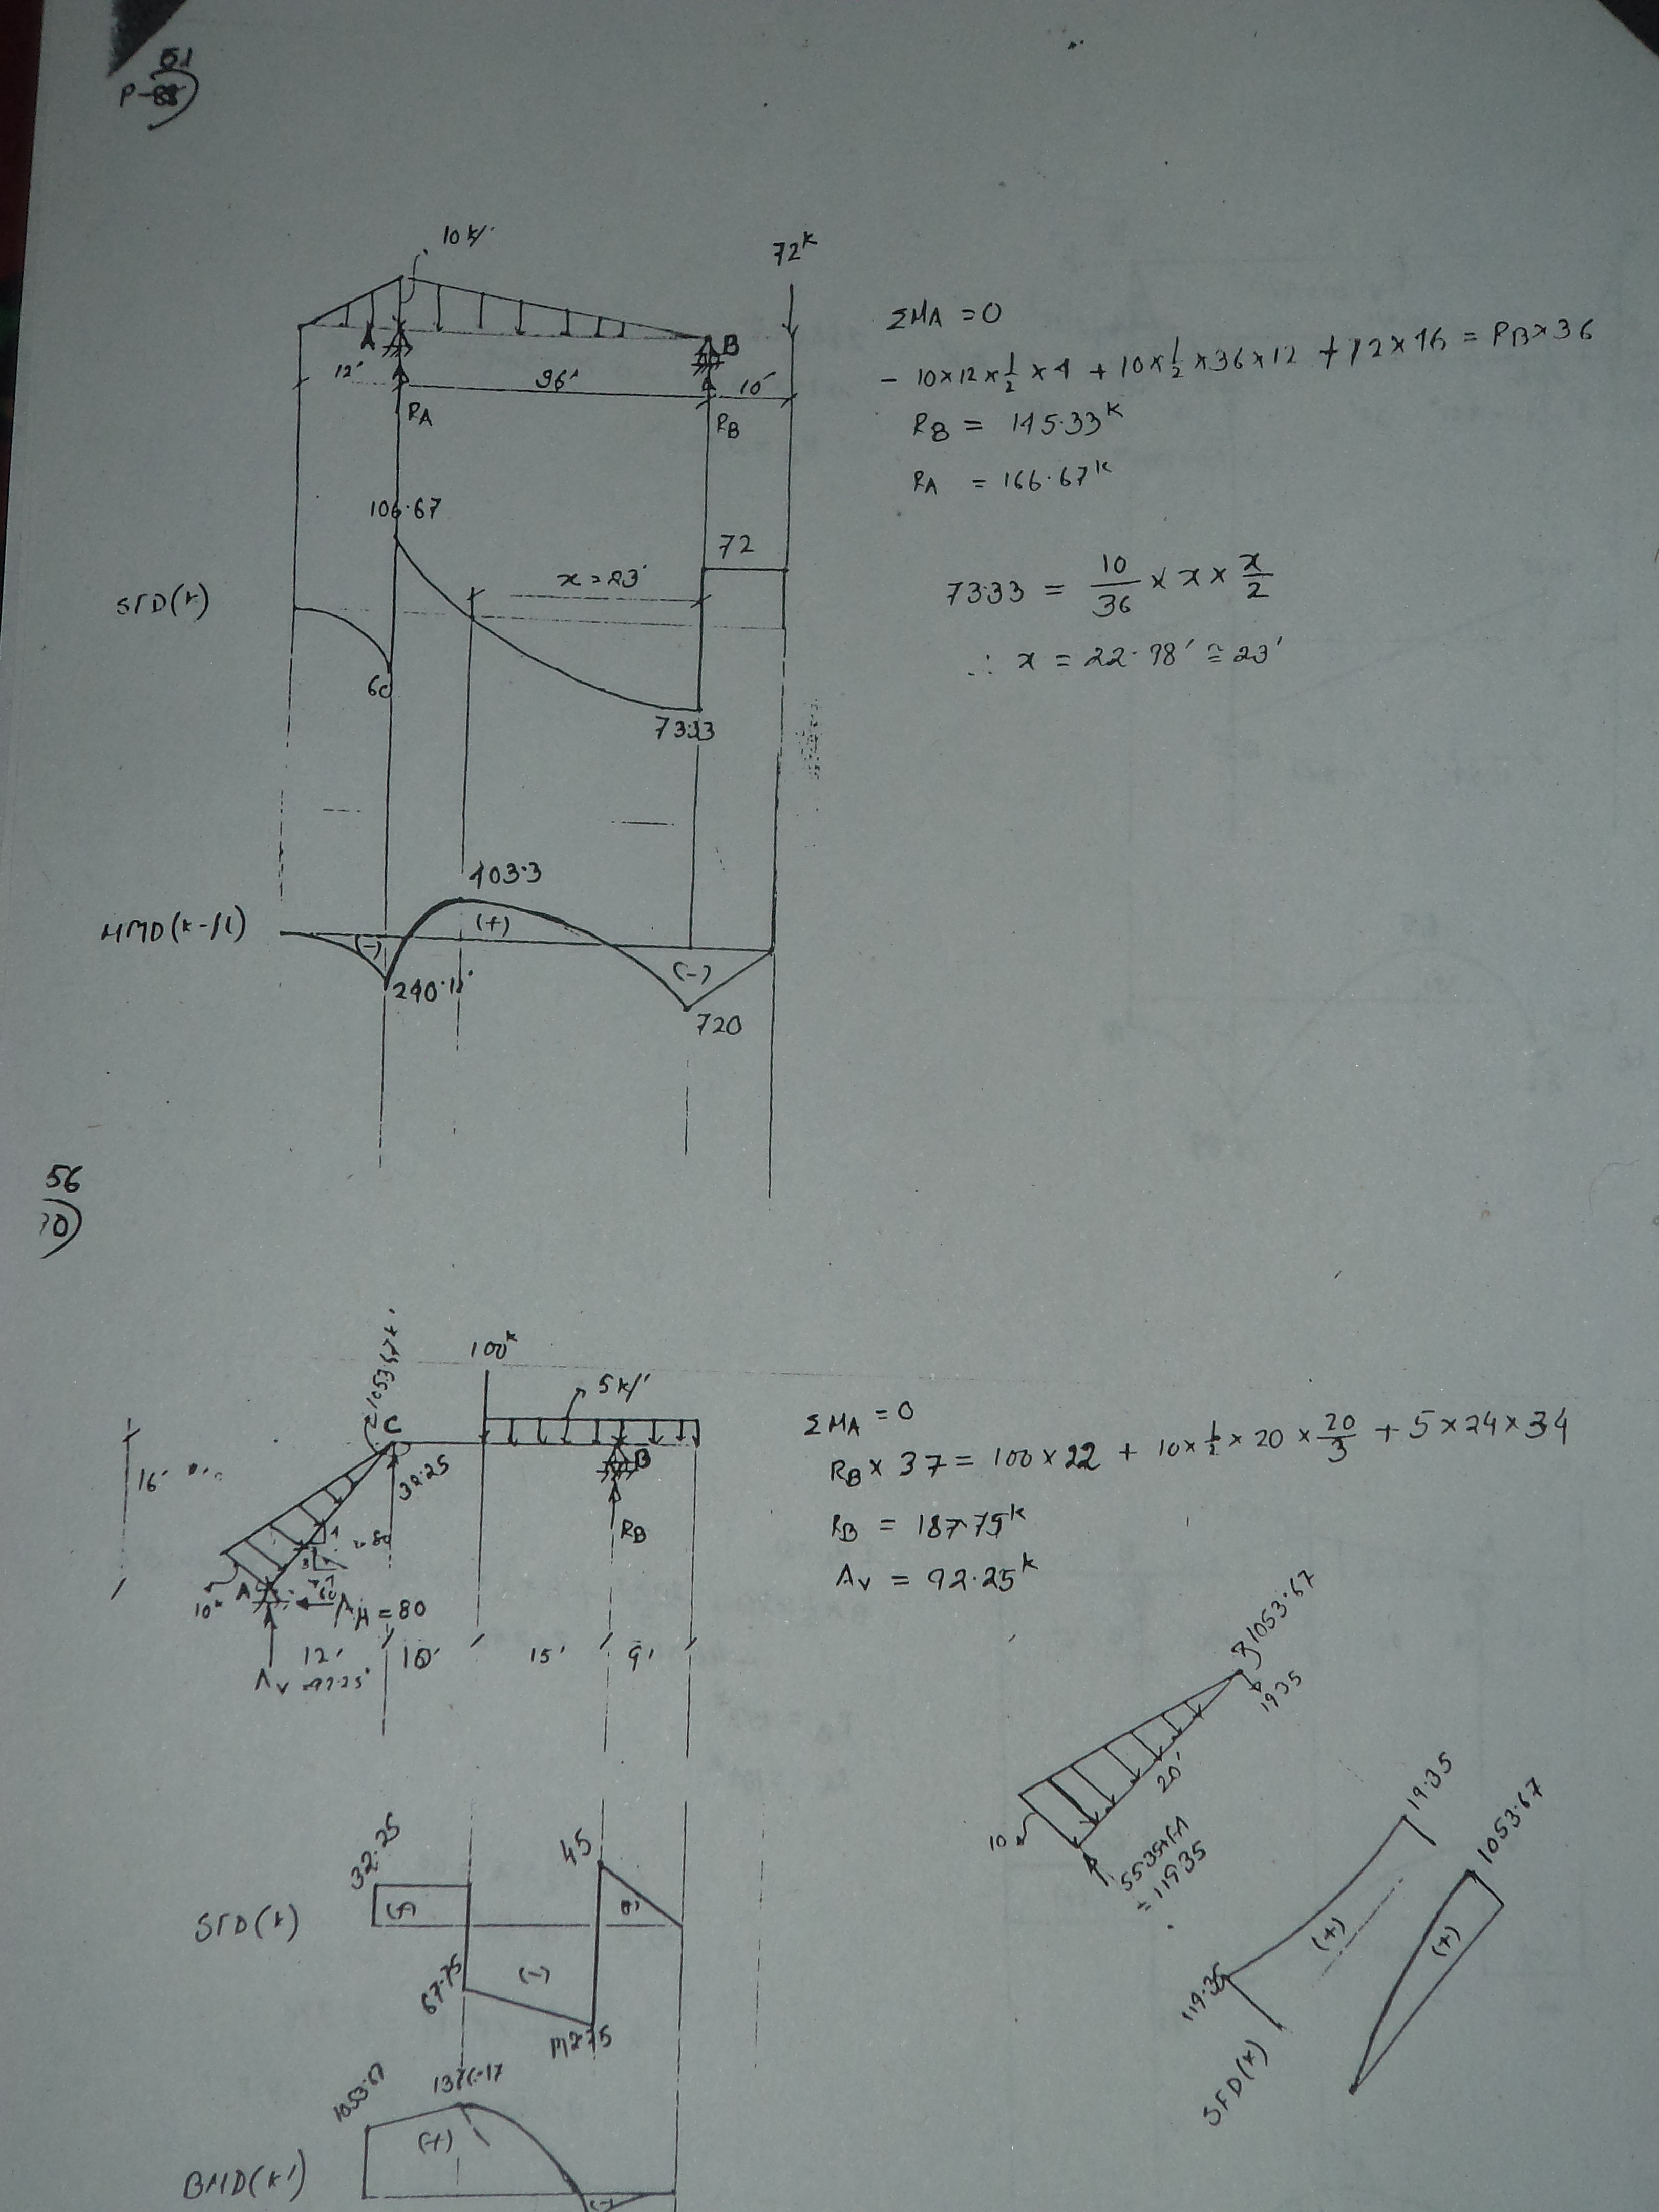 51
P-88)
10 k/'
72 K
A
B
12'
36'
10'
RA
RB
ΣMA = 0
- 10×12×1/2×4 + 10×1/2×36×12 + 72×46 = RB×36
RB = 145.33 K
RA = 166.67 K
106.67
72
x = 23'
SFD(K)
60
73.33
73.33 = 10/36 × x × x/2
∴ x = 22.98' ≅ 23'
403.3
(+)
(-)
240.1'
(-)
720
56
100 K
1053.67 K'
5 K/'
C
16'
32.25
B
RB
10 K
A
AH = 80
12'
10'
15'
9'
AV = 92.25 K
ΣMA = 0
RB × 37 = 100×22 + 10×1/2×20×20/3 + 5×24×34
RB = 187.75 K
AV = 92.25 K
1053.67
19.35
20'
10
55.35+64
= 119.35
32.25
45
SFD(K)
67.75
(-)
142.75
19.35
(+)
119.35
SFD(K)
1053.67
(+)
1053.67
1376.17
(+)
BMD(K')
(-)